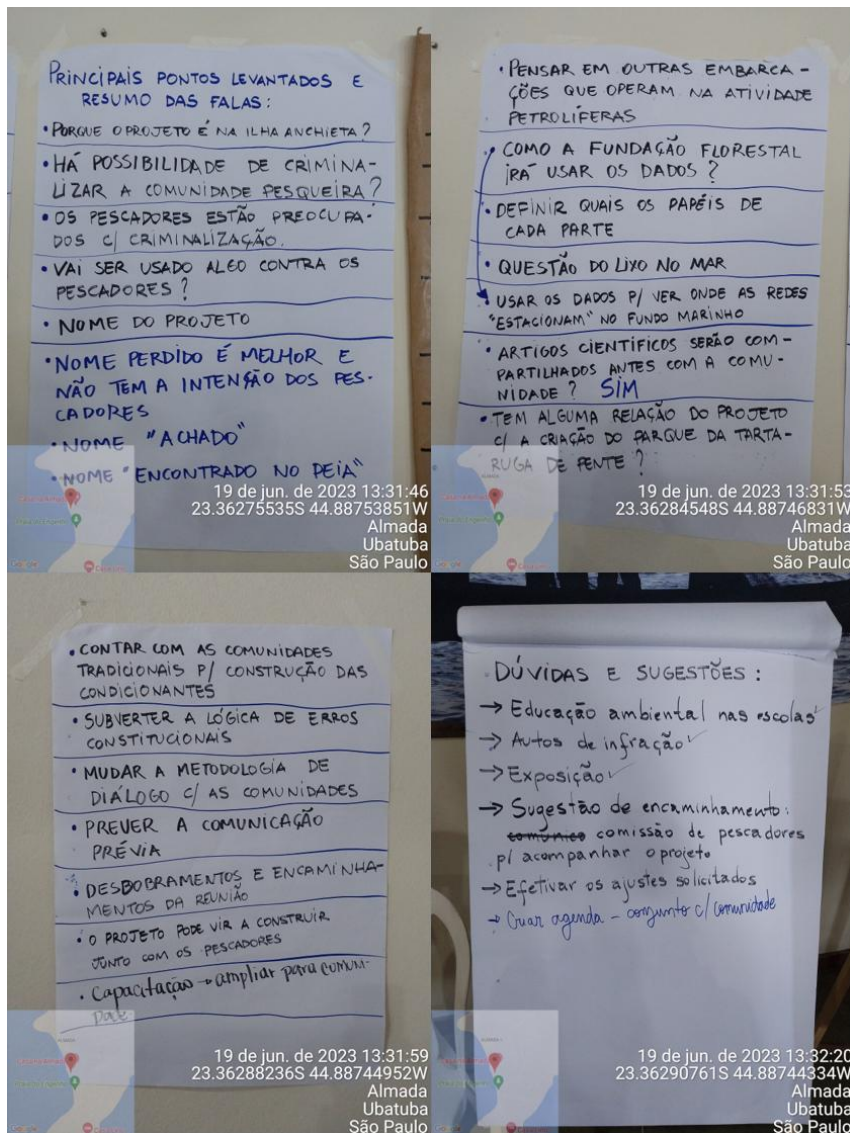 PRINCIPAIS PONTOS LEVANTADOS E
RESUMO DAS FALAS:
• PORQUE O PROJETO É NA ILHA ANCHIETA?
• HÁ POSSIBILIDADE DE CRIMINA-
LIZAR A COMUNIDADE PESQUEIRA?
• OS PESCADORES ESTÃO PREOCUPA-
DOS C/ CRIMINALIZAÇÃO.
• VAI SER USADO ALGO CONTRA OS
PESCADORES?
• NOME DO PROJETO
• NOME PERDIDO É MELHOR E
NÃO TEM A INTENÇÃO DOS PES-
CADORES
• NOME "ACHADO"
• NOME "ENCONTRADO NO PEIA"
19 de jun. de 2023 13:31:46
23.36275535S 44.88753851W
Almada
Ubatuba
São Paulo
• PENSAR EM OUTRAS EMBARCA-
ÇÕES QUE OPERAM NA ATIVIDADE
PETROLÍFERAS
• COMO A FUNDAÇÃO FLORESTAL
IRÁ USAR OS DADOS?
• DEFINIR QUAIS OS PAPÉIS DE
CADA PARTE
• QUESTÃO DO LIXO NO MAR
USAR OS DADOS P/ VER ONDE AS REDES
"ESTACIONAM" NO FUNDO MARINHO
• ARTIGOS CIENTÍFICOS SERÃO COM-
PARTILHADOS ANTES COM A COMU-
NIDADE? SIM
• TEM ALGUMA RELAÇÃO DO PROJETO
C/ A CRIAÇÃO DO PARQUE DA TARTA-
RUGA DE PENTE?
19 de jun. de 2023 13:31:53
23.36284548S 44.88746831W
Almada
Ubatuba
São Paulo
• CONTAR COM AS COMUNIDADES
TRADICIONAIS P/ CONSTRUÇÃO DAS
CONDICIONANTES
• SUBVERTER A LÓGICA DE ERROS
CONSTITUCIONAIS
• MUDAR A METODOLOGIA DE
DIÁLOGO C/ AS COMUNIDADES
• PREVER A COMUNICAÇÃO
PRÉVIA
• DESBOBRAMENTOS E ENCAMINHA-
MENTOS DA REUNIÃO
• O PROJETO PODE VIR A CONSTRUIR
JUNTO COM OS PESCADORES
• Capacitação → ampliar para comuni-
dade
19 de jun. de 2023 13:31:59
23.36288236S 44.88744952W
Almada
Ubatuba
São Paulo
DÚVIDAS E SUGESTÕES:
→ Educação ambiental nas escolas ✓
→ Autos de infração ✓
→ Exposição ✓
→ Sugestão de encaminhamento:
comunico comissão de pescadores
p/ acompanhar o projeto
→ Efetivar os ajustes solicitados
→ Criar agenda - conjunto c/ comunidade
19 de jun. de 2023 13:32:20
23.36290761S 44.88744334W
Almada
Ubatuba
São Paulo